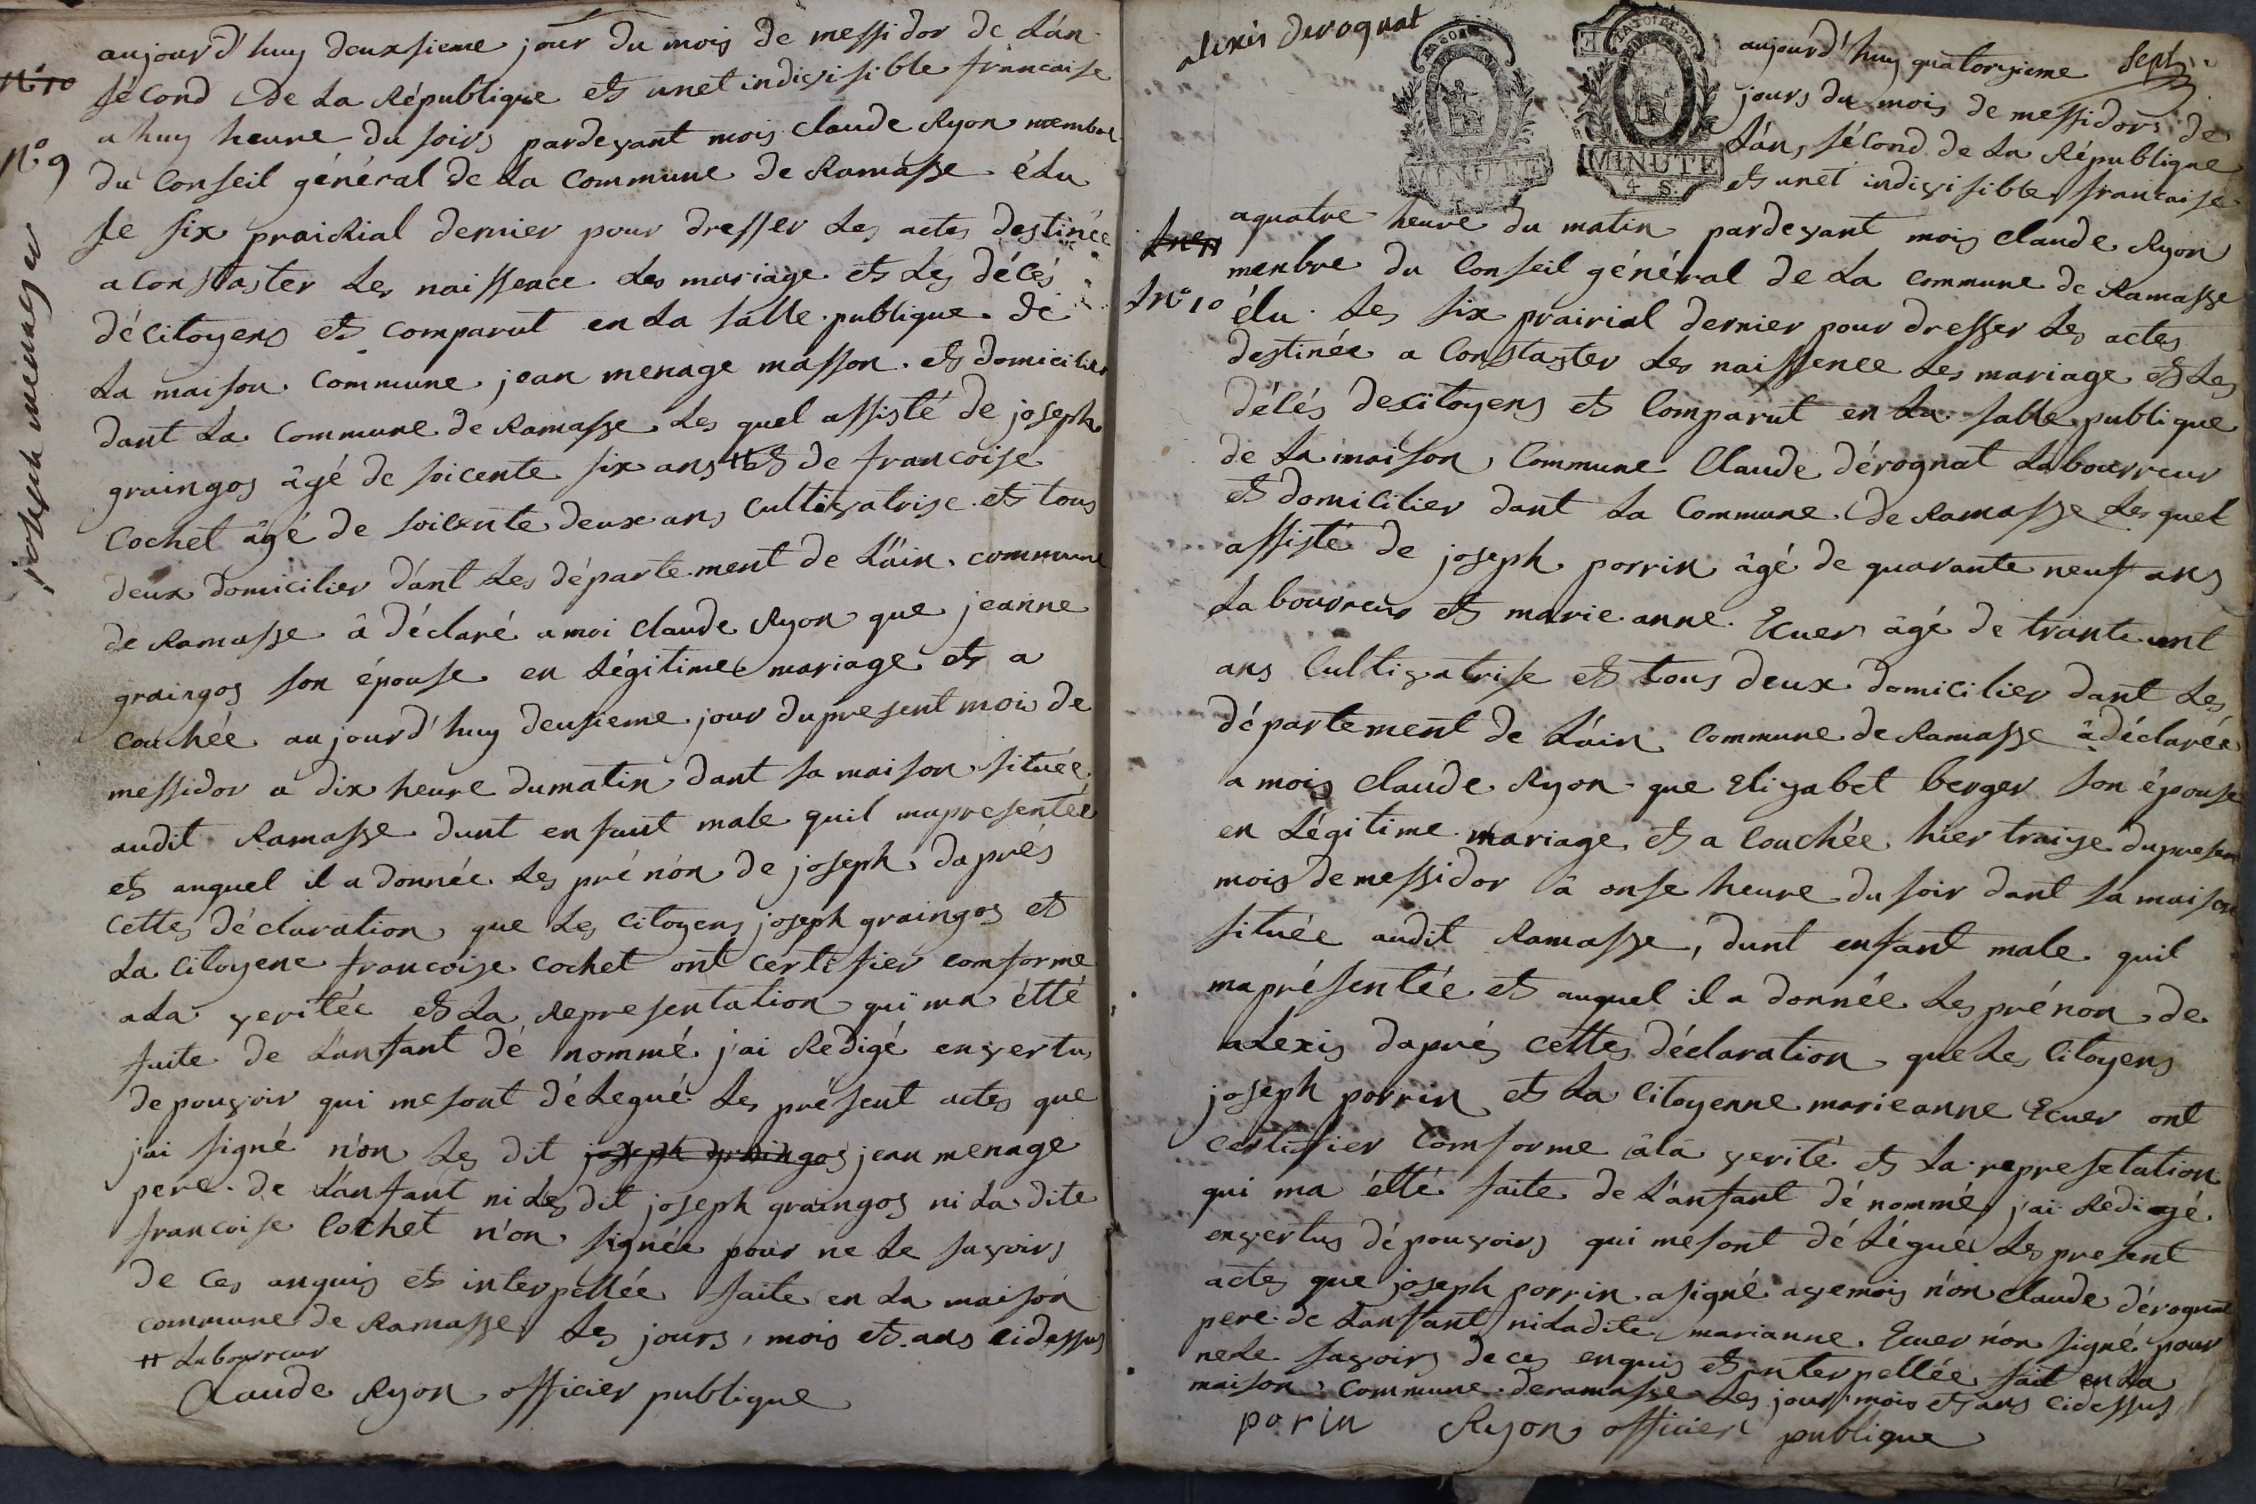 aujourd'huy deuxsieme jour du mois de messidor de L'an
N° 10
sécond de La République et unet indivisible francaise
a huy heure du soirs pardevant mois Claude Ryon membre
N° 9
du Conseil général de La Commune de Ramasse élu
joseph menager
Le six praickial dernier pour dresser Les actes destinée
a Constaster Les naissence Les mariage et Les décés
décitoyens et Comparut en La salle publique de
La maison Commune jean menage masson et domicilier
dant La Commune de Ramasse Les quel assisté de joseph
graingos âgé de soicente six ans # et de francoise
Cochet âgé de soicente deux ans Cultivatrise et tous
deux domicilier dant Les département de L'ain commune
de Ramasse â déclaré a moi Claude Ryon que jeanne
graingos son épouse en Légitime mariage et a
couchée aujourd'huy deusieme jour dupresent mois de
messidor a dix heure dumatin dant sa maison située
audit Ramasse dunt enfant male quil mapresentée
et auquel il a donnée Les prénón de joseph daprés
Cettes déclaration que Les Citoyens joseph graingos et
La Citoyene francoise cochet ont certifier comforme
a La veritée et La Representation qui ma étté
faite de L'anfant dé nommé j'ai Redigé envertus
de pouvoir qui mesont délegué Les présent actes que
j'ai signé n'on Les dit joseph graingos jean menage
pere de L'anfant ni Les dit joseph graingos ni La dite
francoise Cochet n'on signée pour ne Le savoirs
de Ces anquis et interpellée faite en La maison
commune de Ramasse Les jours, mois et ans cidessus
# Labourreur
Claude Ryon officier publique
alexis derognat
MINUTE
MINUTE
4 S.
aujourd'huy quatorzieme sept
jours du mois de messidor de
L'an, sécond de La République
et unet indivisible francaise
aquatre heure du matin pardevant mois Claude Ryon
menbre du Conseil général de La commune de Ramasse
N° 10
élu Les six prairial dernier pour dresser Les actes
destinée a Constaster Les naissence Les mariage et Les
décés decitoyens et Comparut en La salle publique
de La maison Commune Claude dérognat Labourreur
et domicilier dant La Commune de Ramasse Les quel
assisté de joseph porrin âgé de quarante neuf ans
Labourreur et marie anne Ecuer âgé de trante unt
ans Cultivatrise et tous deux domicilier dant Les
département de L'ain Commune de Ramasse â déclarée
a mois Claude Ryon que Elizabet berger son épouse
en Légitime mariage et a Couchée hier traize dupresent
mois de messidor â onse heure du soir dant sa maison
située audit Ramasse, dunt enfant male quil
maprésentée et auquel il a donnée Les prénon de
aLexis daprés cettes déclaration que Les Citoyens
joseph porrin et La Citoyenne marieanne Ecuer ont
certifier Comforme âlâ verité et La represetation
qui ma étté faite de L'anfant dé nommé j'ai Redigé
envertus dé pouvoirs qui mesont délégué Les present
actes que joseph porrin asigné avemois n'on Claude dérognat
pere de L'anfant niLadite marianne Ecuer n'on signé pour
neLe savoirs deces enquis et interpellée fait en La
maison Commune deramasse Les jour mois et ans cidessus
porin Ryon officier publique